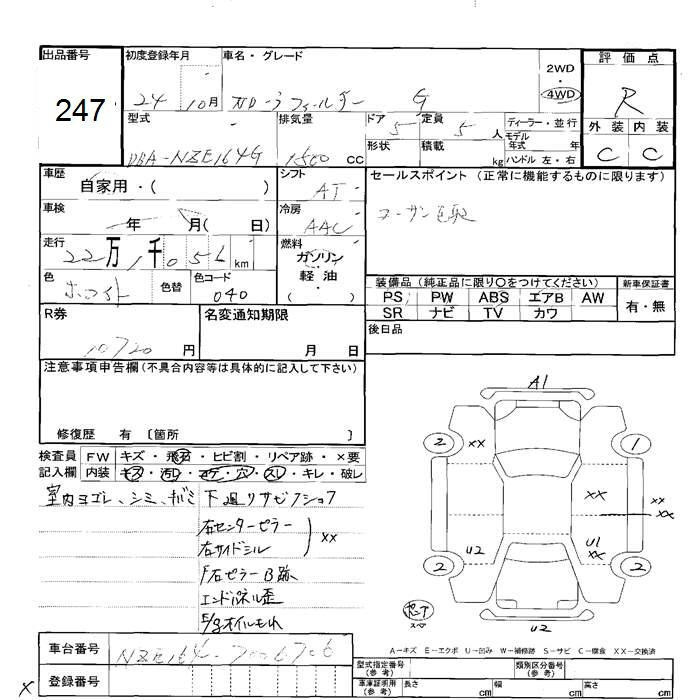 出品番号 247
初度登録年月 24 10月
車名・グレード カローラフィールダー G
2WD・4WD
評価点 R
外装 内装
C C
型式 DBA-NZE164G
排気量 1500 CC
ドア 5
定員 5 人
形状
積載 kg
ディーラー・並行
モデル年式 年
ハンドル 左・右
車歴 自家用・( )
シフト AT
セールスポイント (正常に機能するものに限ります)
車検 年 月( 日)
冷房 AAC
走行 22万 千 056 km
燃料 ガソリン・軽油 ( )
色 ホワイト 色替
色コード 040
装備品 (純正品に限り〇をつけてください)
新車保証書
PS PW ABS エアB AW
有・無
SR ナビ TV カワ
R券 10720 円
名変通知期限 月 日
後日品
注意事項申告欄 (不具合内容等は具体的に記入して下さい)
修復歴 有 〔箇所 〕
検査員記入欄
FW キズ・飛石・ヒビ割・リペア跡・×要
内装 キズ・汚れ・コゲ・穴・スレ・キレ・破レ
室内ヨゴレ、シミ、キバミ
下廻りサビクション
右センターピラー
右サイドシル
XX
右ピラーB跡
エンドパネル歪
E/gオイルもれ
A1
2 XX 1
XX XX
XX
U2 U1
XX
2 2
スペア
U2
A-キズ E-エクボ U-凹み W-補修跡 S-サビ C-腐食 XX-交換済
車台番号 NZE164-7006706
登録番号
X
型式指定番号(参考)
類別区分番号(参考)
車庫証明用(参考) 長さ cm 幅 cm 高さ cm